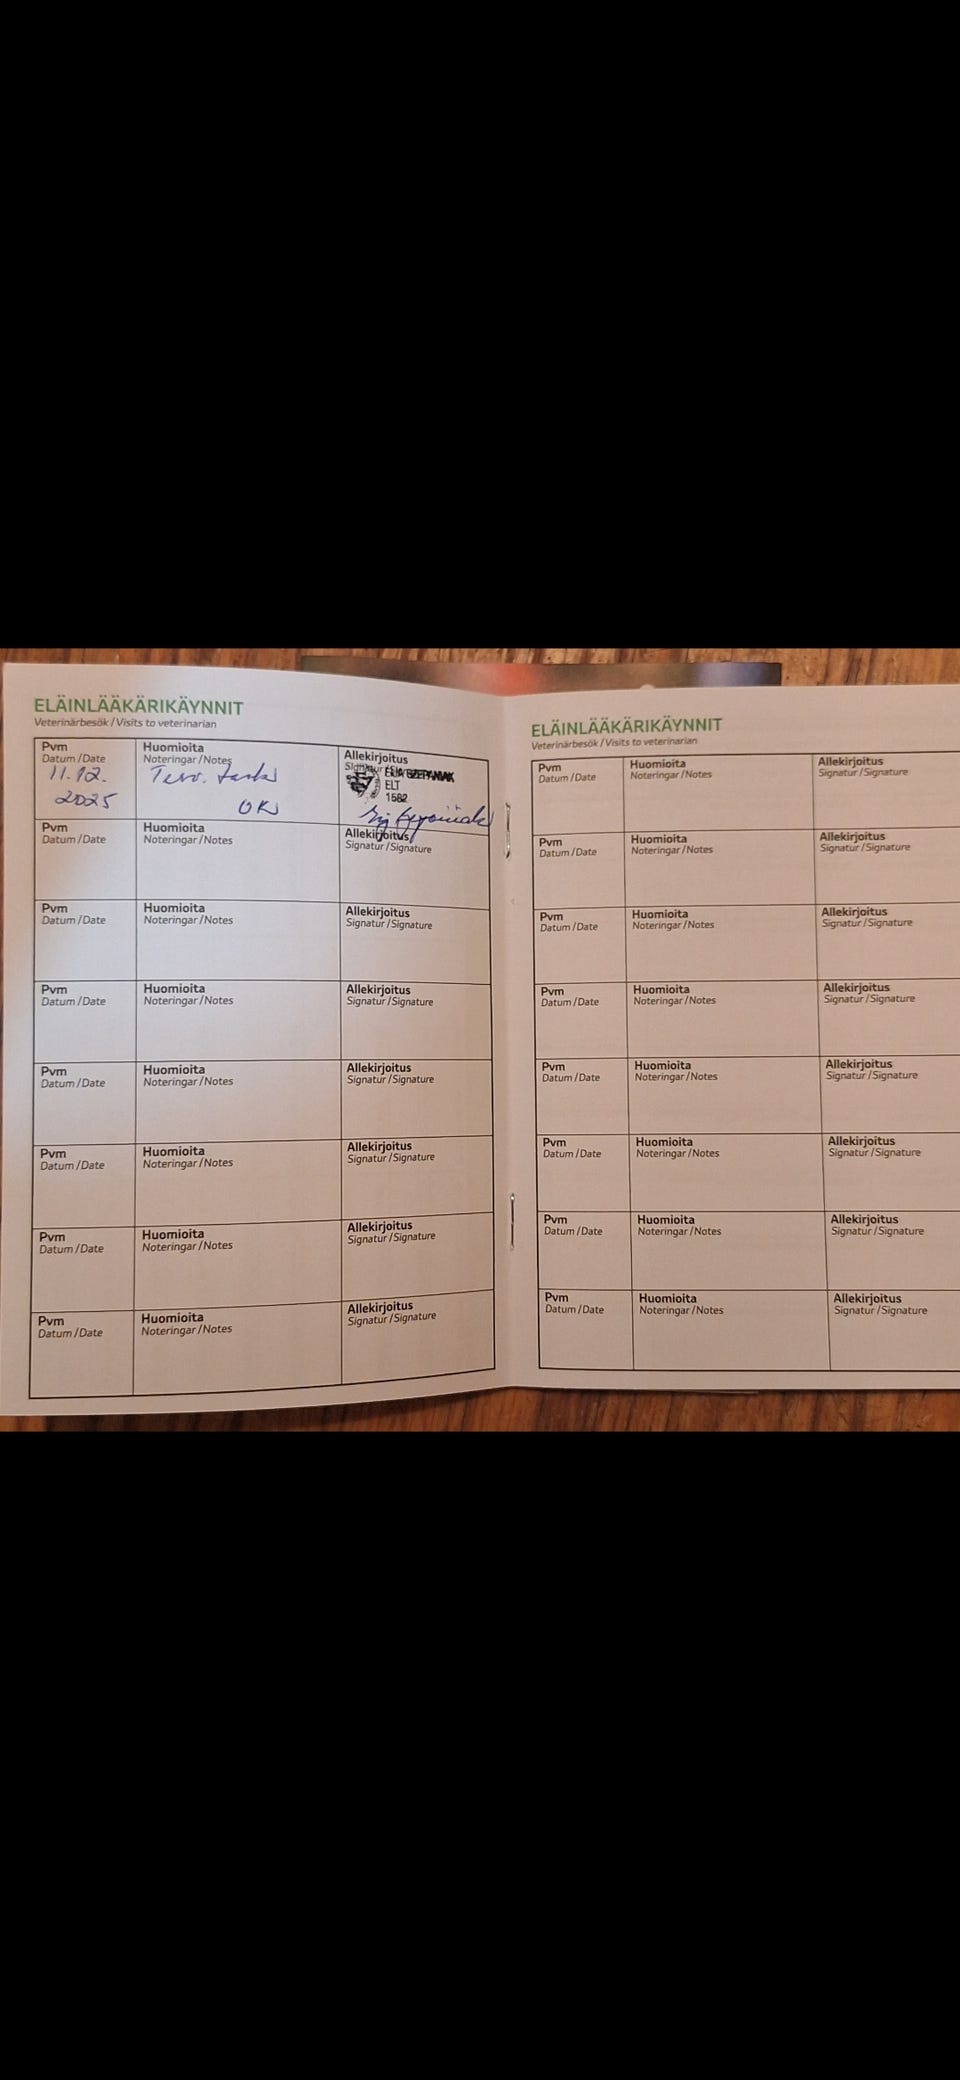 ELÄINLÄÄKÄRIKÄYNNIT
Veterinärbesök / Visits to veterinarian
Pvm Huomioita Allekirjoitus
Datum / Date Noteringar / Notes
11.12. Terv. tark
ELT
2025 OK 1582
Pvm Huomioita Allekirjoitus
Datum / Date Noteringar / Notes Signatur / Signature
Pvm Huomioita Allekirjoitus
Datum / Date Noteringar / Notes Signatur / Signature
Pvm Huomioita Allekirjoitus
Datum / Date Noteringar / Notes Signatur / Signature
Pvm Huomioita Allekirjoitus
Datum / Date Noteringar / Notes Signatur / Signature
Pvm Huomioita Allekirjoitus
Datum / Date Noteringar / Notes Signatur / Signature
Pvm Huomioita Allekirjoitus
Datum / Date Noteringar / Notes Signatur / Signature
Pvm Huomioita Allekirjoitus
Datum / Date Noteringar / Notes Signatur / Signature
ELÄINLÄÄKÄRIKÄYNNIT
Veterinärbesök / Visits to veterinarian
Pvm Huomioita Allekirjoitus
Datum / Date Noteringar / Notes Signatur / Signature
Pvm Huomioita Allekirjoitus
Datum / Date Noteringar / Notes Signatur / Signature
Pvm Huomioita Allekirjoitus
Datum / Date Noteringar / Notes Signatur / Signature
Pvm Huomioita Allekirjoitus
Datum / Date Noteringar / Notes Signatur / Signature
Pvm Huomioita Allekirjoitus
Datum / Date Noteringar / Notes Signatur / Signature
Pvm Huomioita Allekirjoitus
Datum / Date Noteringar / Notes Signatur / Signature
Pvm Huomioita Allekirjoitus
Datum / Date Noteringar / Notes Signatur / Signature
Pvm Huomioita Allekirjoitus
Datum / Date Noteringar / Notes Signatur / Signature